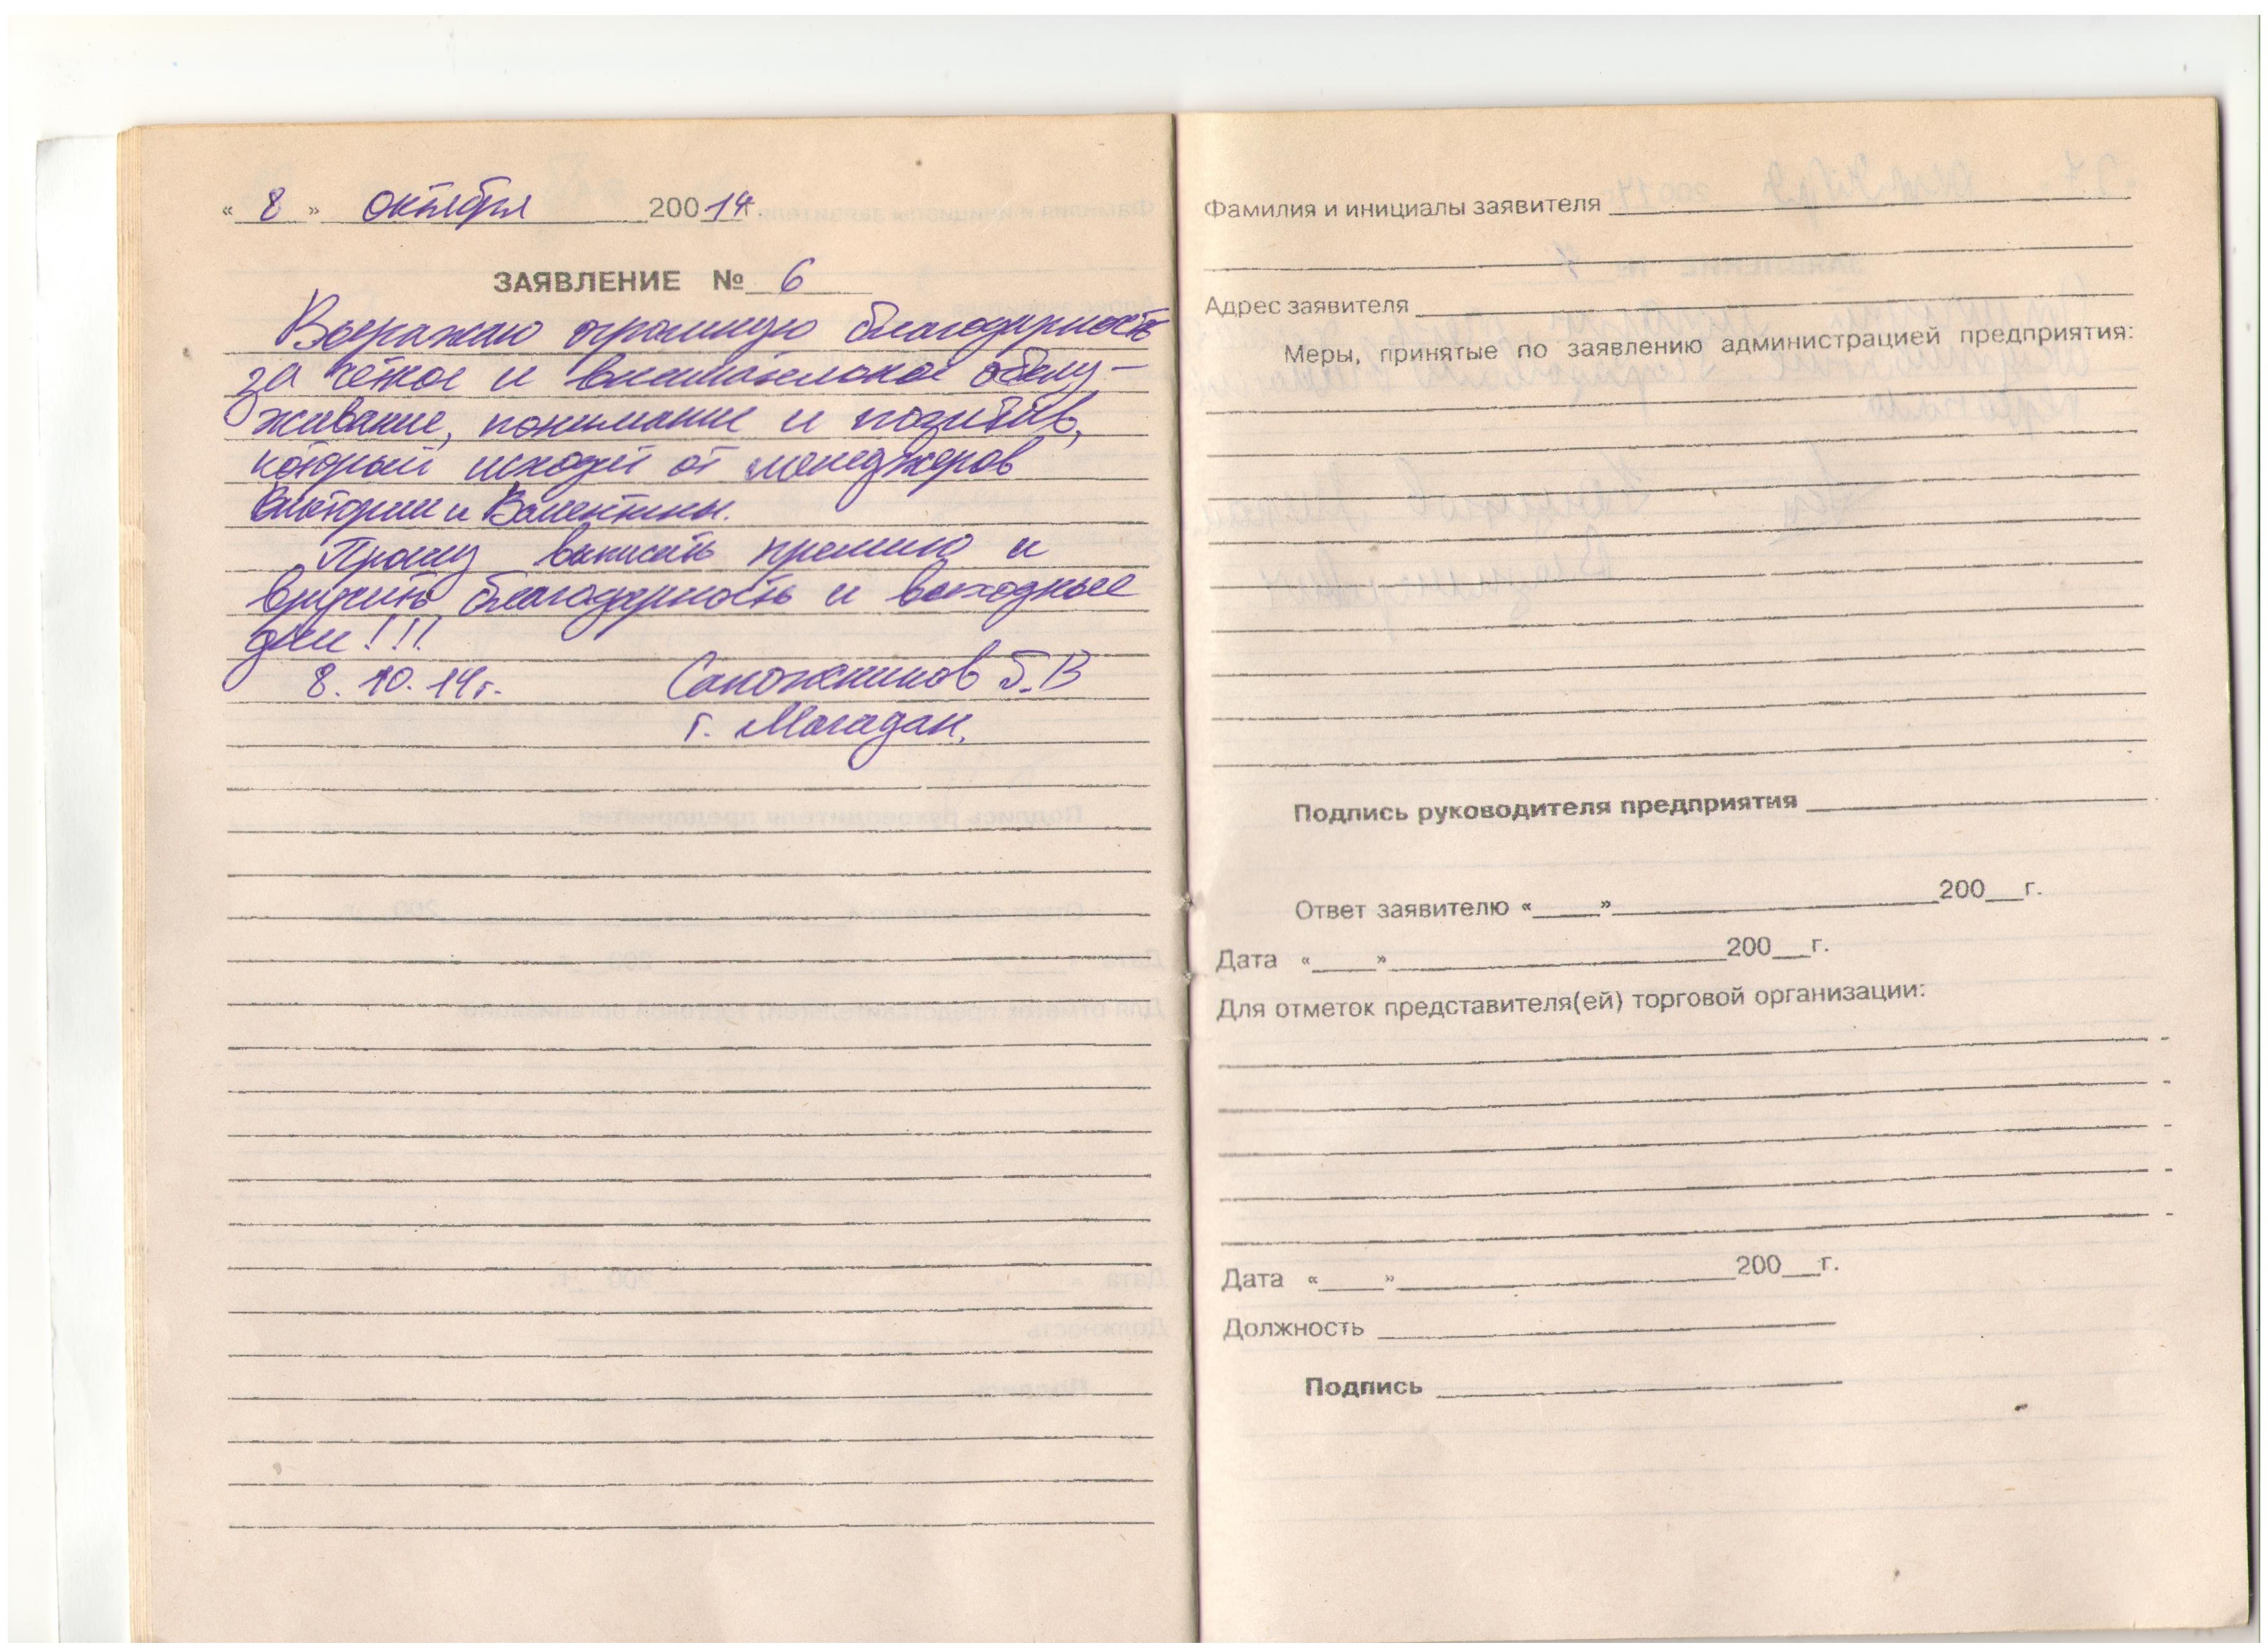 « 8 » октября 20014г.
ЗАЯВЛЕНИЕ № 6
Выражаю огромную благодарность
за чёткое и внимательное обслу-
живание, понимание и позитив,
который исходит от менеджеров
Виктории и Валентины.
Прошу выписать премию и
вручить благодарность и выходные
дни!!!
8.10.14г. Сапожников Б.В
г. Магадан.
Фамилия и инициалы заявителя
Адрес заявителя
Меры, принятые по заявлению администрацией предприятия:
Подпись руководителя предприятия
Ответ заявителю «____»____200__г.
Дата «____»____200__г.
Для отметок представителя(ей) торговой организации:
Дата «____»____200__г.
Должность
Подпись